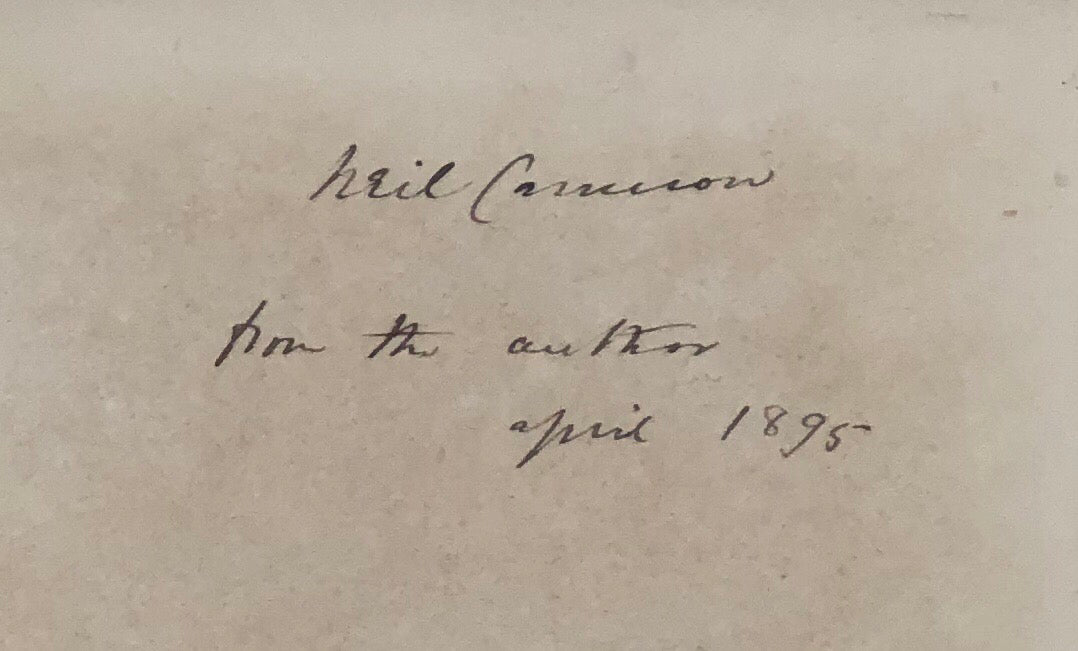 Neil Cameron
from the author
april 1895